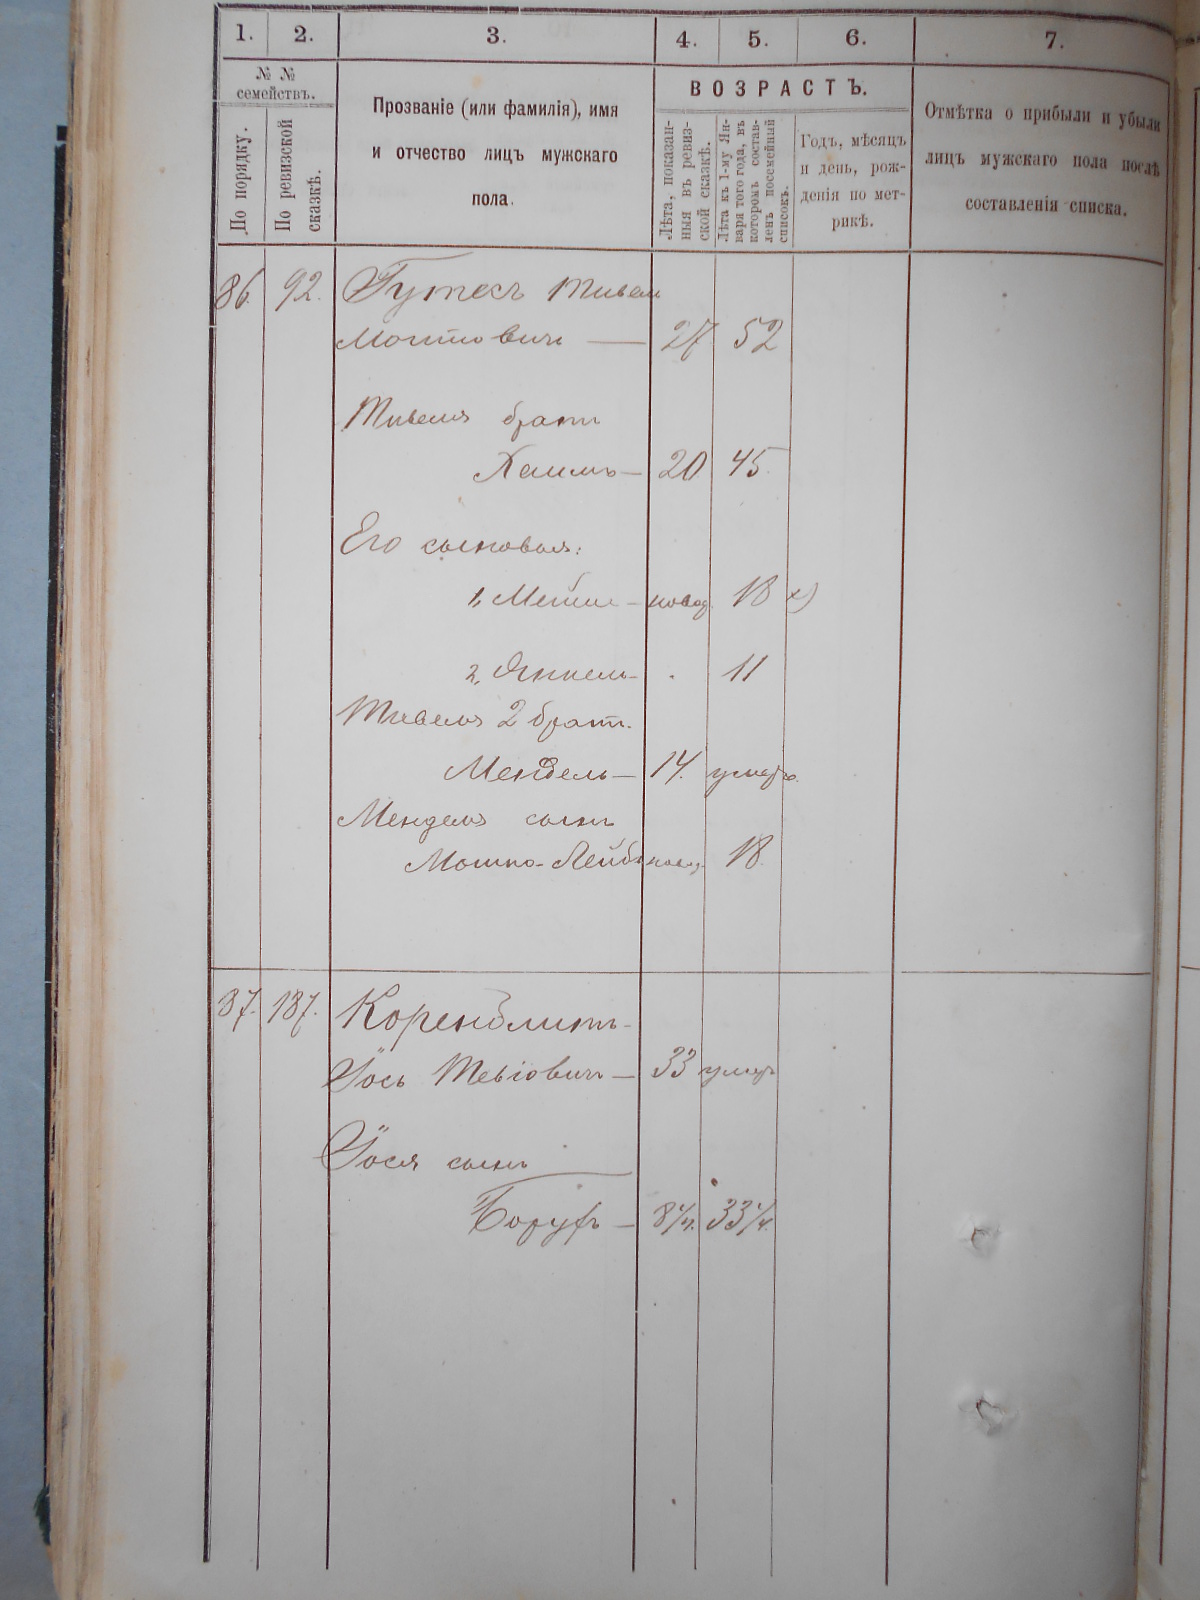 1. 2. 3. 4. 5. 6. 7.
№ №
семействъ.
По порядку.
По ревизской
сказкѣ.
Прозваніе (или фамилія), имя
и отчество лицъ мужскаго
пола.
ВОЗРАСТЪ.
Лѣта, показан-
ныя въ ревиз-
ской сказкѣ.
Лѣта къ 1-му Ян-
варя того года, въ
которомъ состав-
ленъ посемейный
списокъ.
Годъ, мѣсяцъ
и день, рож-
денія по мет-
рикѣ.
Отмѣтка о прибыли и убыли
лицъ мужскаго пола послѣ
составленія списка.
86. 92. Тивель
Мошковичъ — 27 52
Тивеля братъ
Хаимъ — 20 45
Его сыновья:
1, — новор. 18 х)
2, Янкель - 11
Тивеля 2 братъ.
Мендель — 14. умеръ.
Менделя сынъ
Мошко-Лейба новор. 18.
87. 187. Коренблитъ
Іось Тевіовичъ — 33 умеръ
Іося сынъ
Борухъ — 8¼. 33¼.